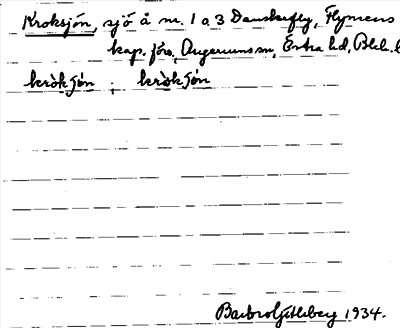 Kroksjön, sjö å nr. 1 o 3 Danskefly, Flymens
kap. förs, Augerums sn, Östra hd, Blek. l
kròksjön ; kròksjön
Barbro Littleberg 1934.